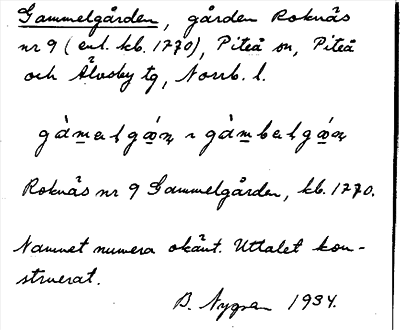 Gammelgården, gården Roknäs
nr 9 (enl. kb. 1770), Piteå sn, Piteå
och Älvsby tg, Norrb. l.
Roknäs nr 9 Gammelgården, kb. 1770.
Namnet numera okänt. Uttalet kon-
struerat.
B. Nygren 1934.